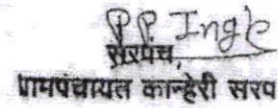 P.P. Ingle
सरपंच,
ग्रामपंचायत कान्हेरी सरप